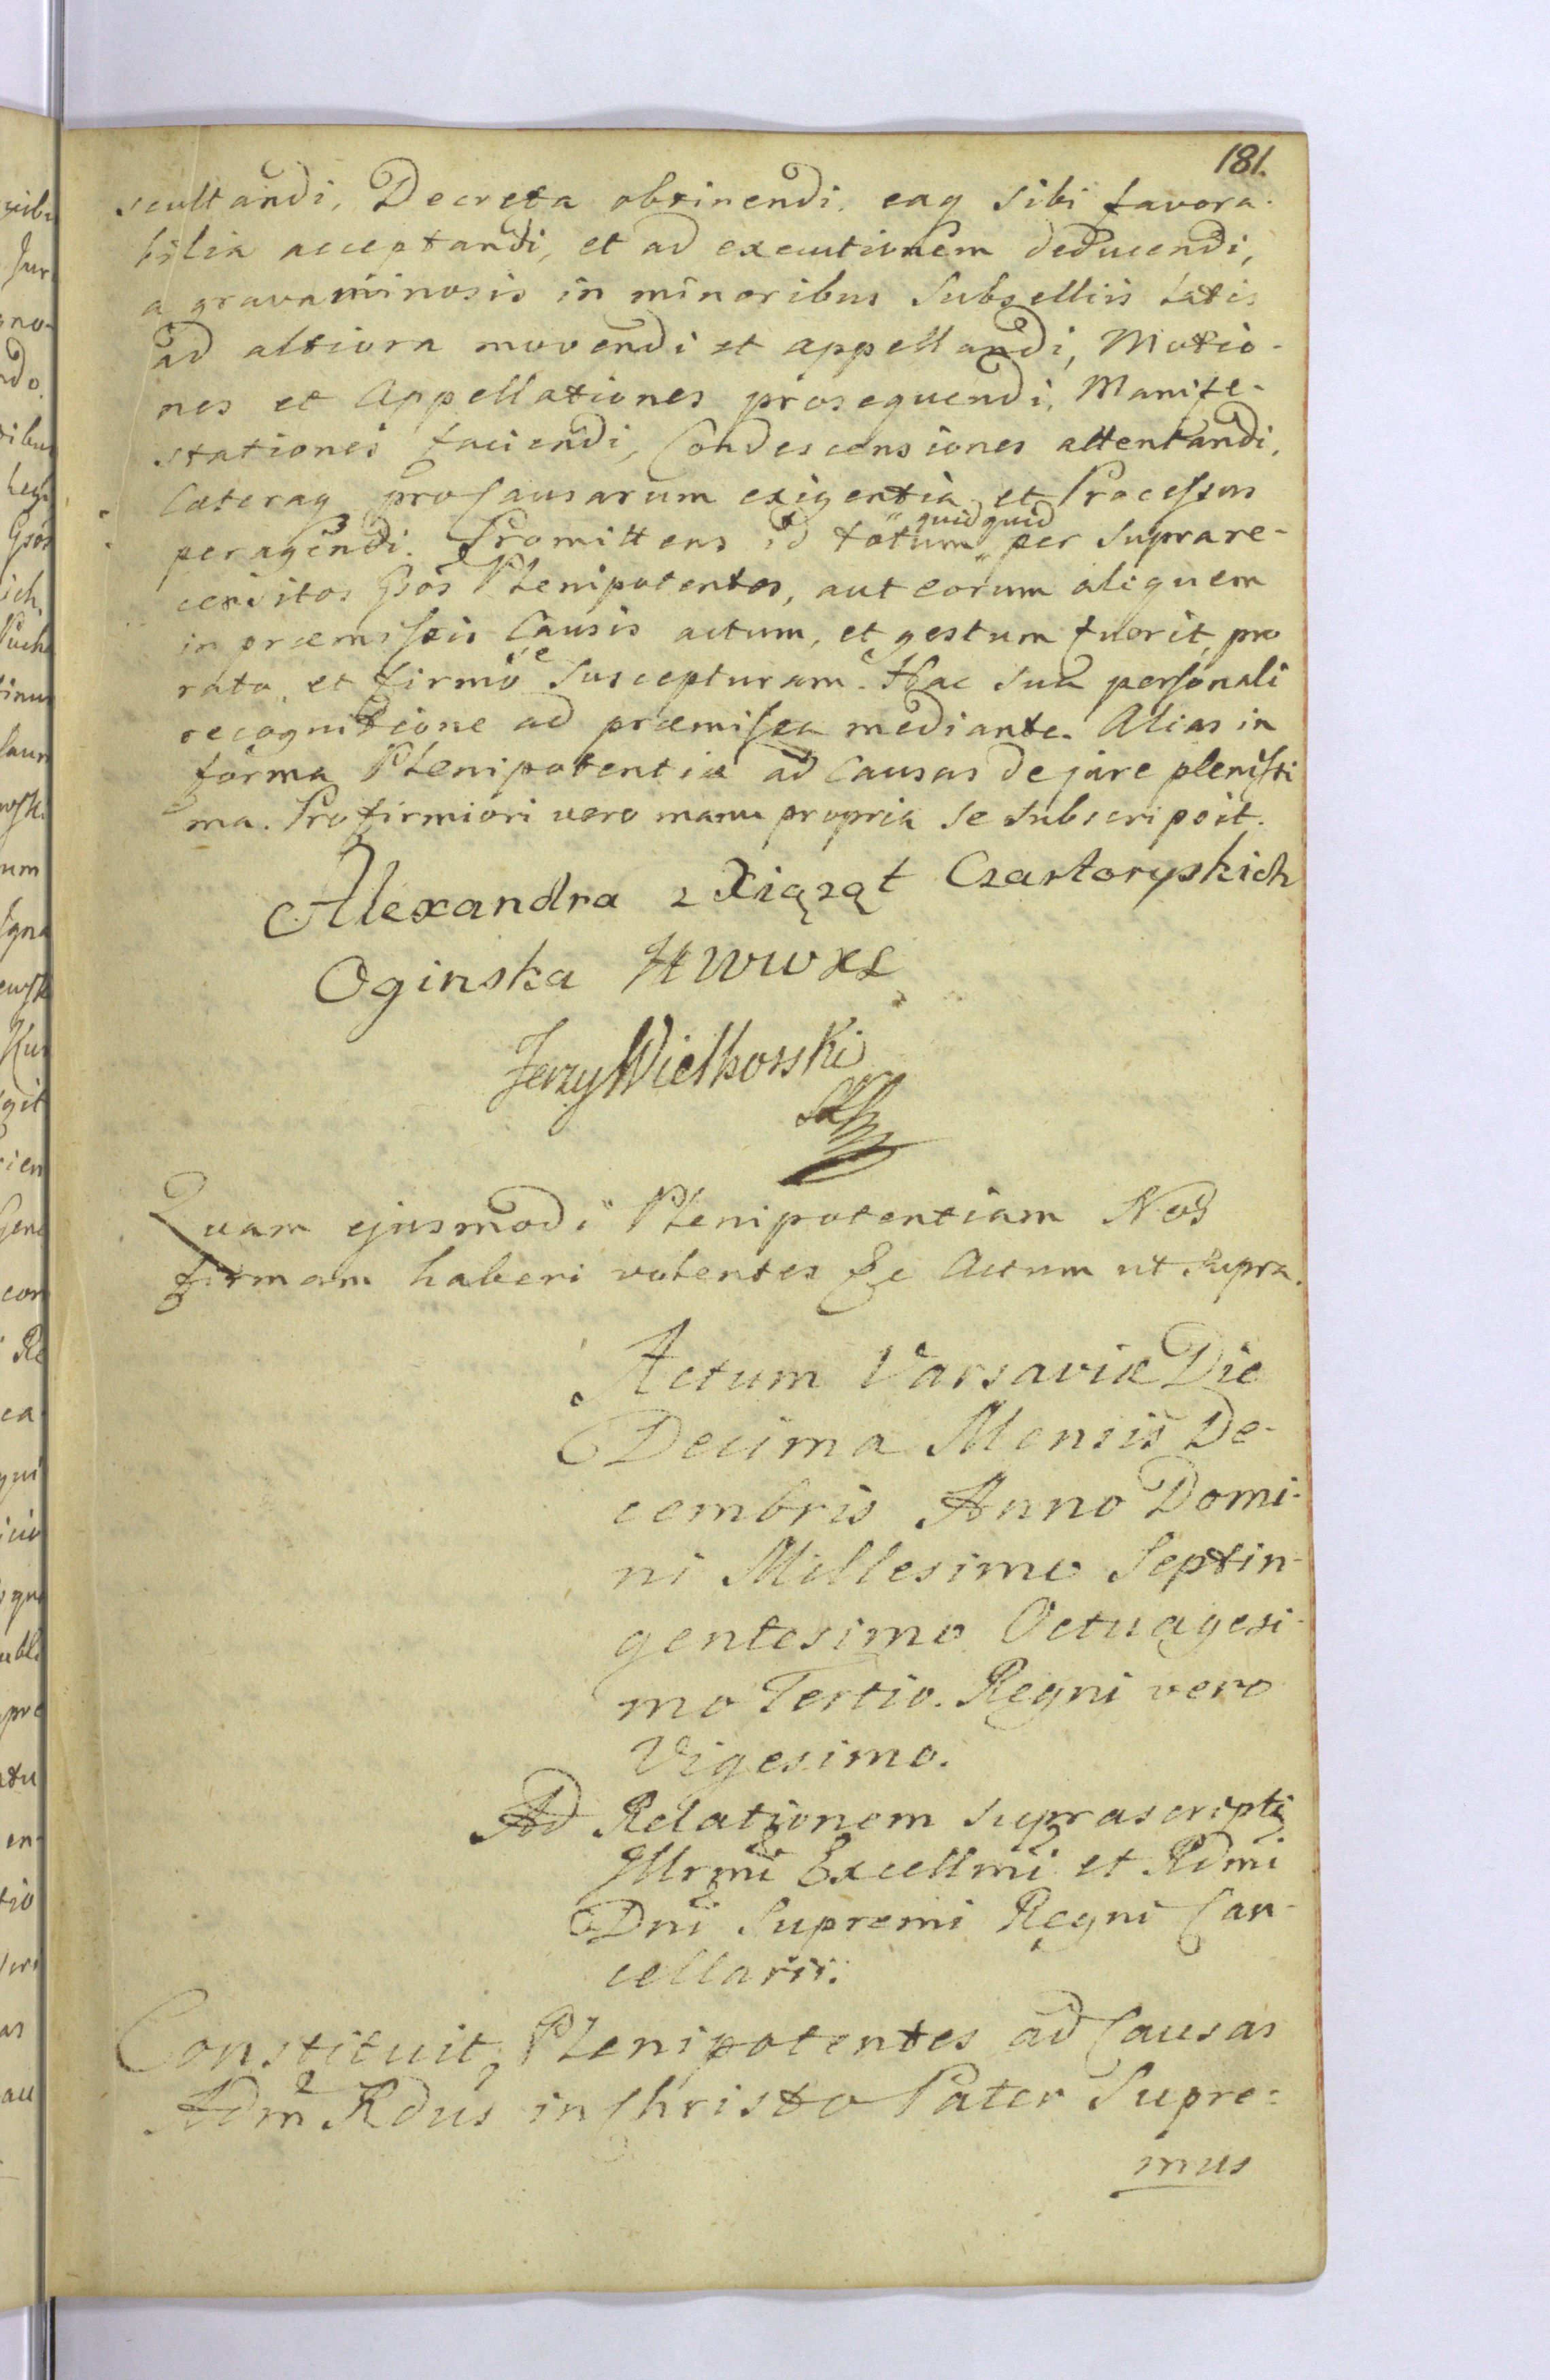 181.
scultandi, Decreta obtinendi, eaq sibi favora-
bilia acceptandi, et ad executionem deducendi,
a gravaminosis in minoribus Subselliis latis
ad altiora movendi et appellandi, Motio-
nes et Appellationes prosequendi, Manife-
stationes faciendi, Condescensiones attentandi,
Cæteraq pro Causarum exigentia et Processus
peragendi. Promittens id totum quidquid per Suprare-
censitos Gsos Plenipotentes, aut eorum aliquem
in præmissis Causis actum, et gestum fuerit, pro
rato, et firmo se Suscepturam. Hac sua personali
recognitione ad præmissa mediante. Alias in
forma Plenipotentiæ ad Causas de jure plenissi
ma. Pro firmiori vero manu propria se subscripsit.
Alexandra z Xiążąt Czartoryskich
Oginska HWWXL
Jerzy Wielhorski
Quam ejusmodi Plenipotentiam Nos
firmam haberi volentes &c Actum ut supra.
Actum Varsaviæ Die
Decima Mensis De-
cembris Anno Domi-
ni Millesimo Septin-
gentesimo Octuagesi-
mo Tertio. Regni vero
Vigesimo.
Ad Relationem suprascripti
Illrmi Excellmi et Rdmi
Dni Supremi Regni Can-
cellarii.
Constituit Plenipotentes ad Causas
Adm Rdus in Christo Pater Supre-
mus